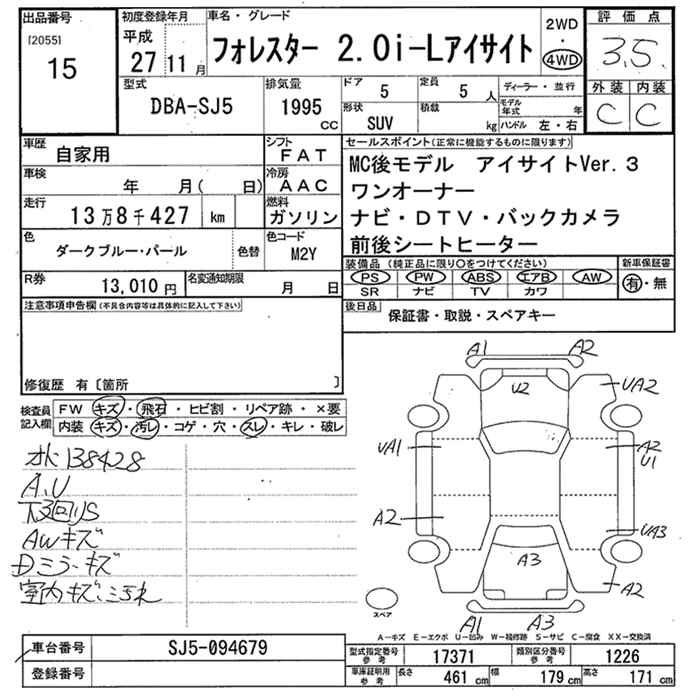 出品番号
[2055]
15
初度登録年月
平成
27 11 月
車名・グレード
フォレスター 2.0i-Lアイサイト
2WD
・
4WD
評価点
3.5
外装 内装
C C
型式
DBA-SJ5
排気量
1995
CC
ドア
5
定員
5 人
形状
SUV
積載
kg
ディーラー・並行
モデル年式 年
ハンドル 左・右
車歴
自家用
シフト
FAT
車検
年 月( 日)
冷房
AAC
走行
13万8千427 km
燃料
ガソリン
色
ダークブルー・パール
色替
色コード
M2Y
R券
13,010 円
名変通知期限
月 日
セールスポイント(正常に機能するものに限ります)
MC後モデル アイサイトVer.3
ワンオーナー
ナビ・DTV・バックカメラ
前後シートヒーター
装備品(純正品に限り○をつけてください)
PS PW ABS エアB AW
SR ナビ TV カワ
新車保証書
有・無
後日品
保証書・取説・スペアキー
注意事項申告欄(不具合内容等は具体的に記入して下さい)
修復歴 有〔箇所 〕
検査員
記入欄
FW キズ・飛石・ヒビ割・リペア跡・×要
内装 キズ・汚レ・コゲ・穴・スレ・キレ・破レ
138428
A、U
下回りS
AWキズ
Dミラーキズ
室内キズ、汚れ
A1 A2
U2
UA2
UA1
A2
U1
A2
UA3
A3
A2
A1 A3
スペア
A-キズ E-エクボ U-凹み W-補修跡 S-サビ C-腐食 XX-交換済
車台番号
SJ5-094679
登録番号
型式指定番号
参考
17371
類別区分番号
参考
1226
車庫証明用
参考
長さ
461 cm
幅
179 cm
高さ
171 cm